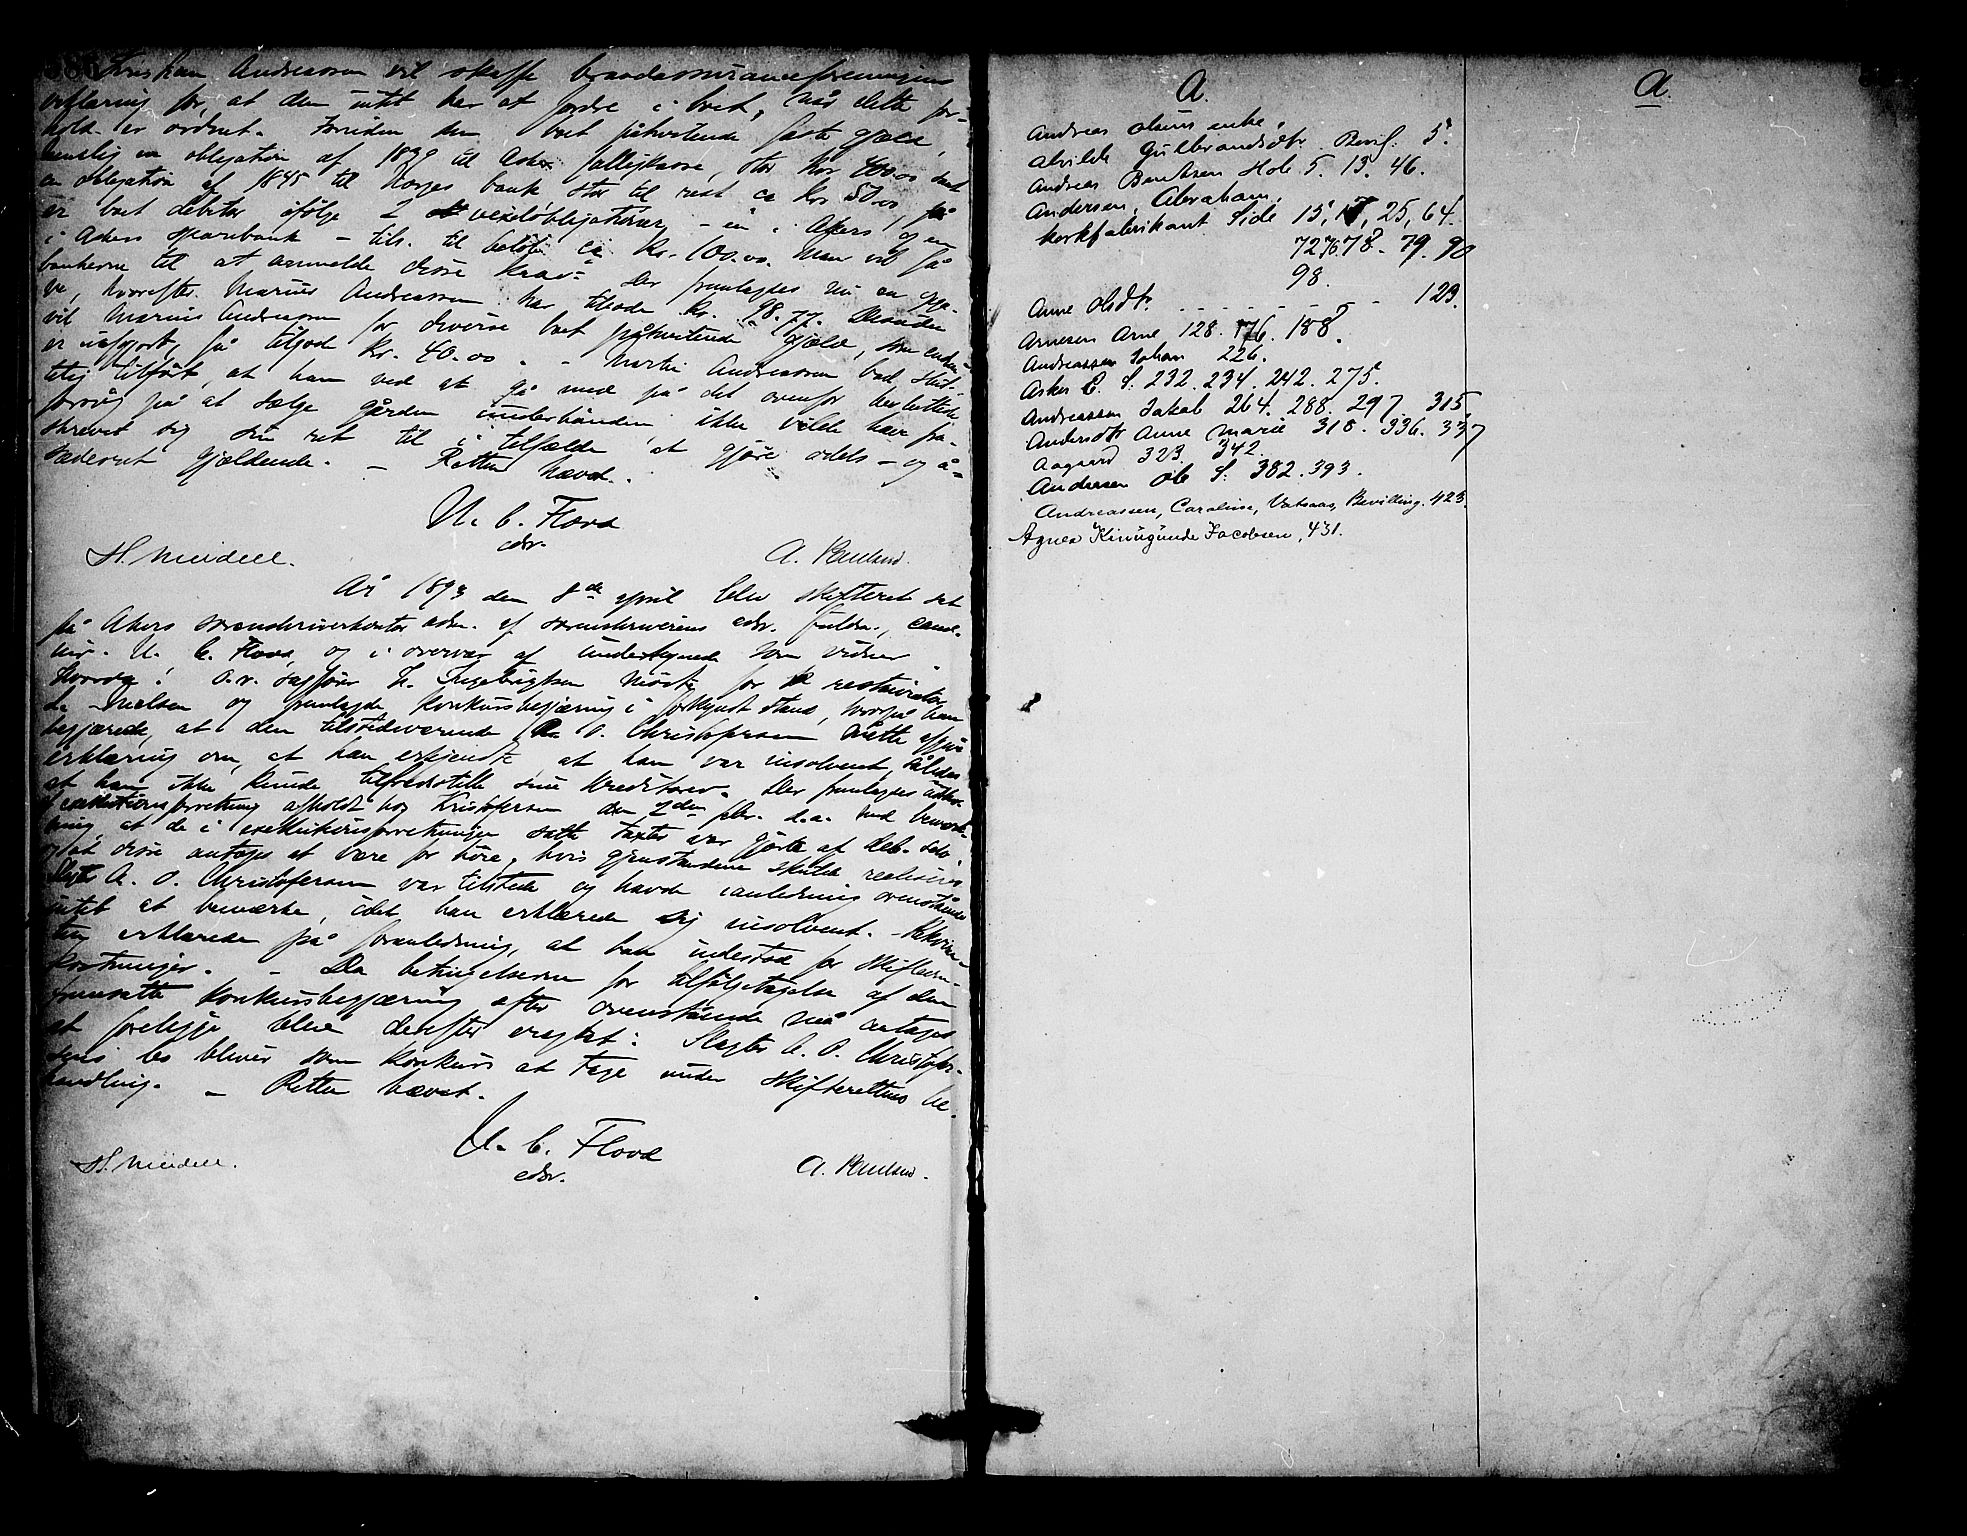 Kristian Andreassen vil skaffe brandassuranceforeningens
erklæring for, at den intet har at fordre i boet, når dette for-
hold er ordnet. Foruden den boet påhvilende faste gjæld,
nemlig en obligation af 1839 til Asker fattigkasse, stor kr. 400.00 samt
en obligation af 1845 til Norges bank stor til rest ca kr. 50.00, så
er boet debitor ifølge 2 vexelobligationer, - en i Akers og en
i Askers sparebank - tils. til beløb ca kr. 100.00. Man vil få
bankerne til at anmelde disse krav. Der fremlagdes nu en opga-
ve, hvorefter Marius Andreassen har tilgode kr. 98.77. Desuden
vil Marius Andreassen for diverse boet påhvilende gjæld, som endnu
er uopgjort, få tilgode kr. 40.00. - Martin Andreassen bad slut-
telig tilført, at han ved at gå med på det ovenfor besluttede
forsøg på at sælge gården underhånden ikke vilde have fra-
skrevet sig sin ret til i tilfælde at gjøre odels- og å-
sædesret gjældende. - Retten hævet.
U. C. Flood
edsv.
H. Meidell. A. Paulsen.
År 1893 den 8de april blev skifteret sat
på Akers sorenskriverkontor adm. af sorenskriverens edsv. fuldm., cand.
jur. U. C. Flood, og i overvær af undertegnede som vidner.
Hvorda: o.r. sagfører H. Ingebrigtsen mødte for restauratør
Nielsen og fremlagde konkursbegjæring i forkyndt stand, hvorpå han
begjærede, at den tilstedeværende A. O. Christofersen måtte afgive
erklæring om, at han erkjendte at han var insolvent, således
at han ikke kunde tilfredsstille sine kreditorer. Der fremlagdes udskr.
af exekutionsforretning afholdt hos Kristofersen den 2den febr. d.a. med bemærk-
ning, at de i exekutionsforretningen satte taxter var gjorte af deb. selv,
og at disse antages at være for høie, hvis gjenstandene skulde realiseres.
Slagter A. O. Christofersen var tilstede og havde i anledning ovenstående
intet at bemærke, idet han erklærede sig insolvent. - Rekviren-
ten erklærede på foranledning, at han indestod for skifteom-
kostninger. - Da betingelserne for tilfølgetagelse af den
fremsatte konkursbegjæring efter ovenstående må antages
at foreligge, blev derefter eragtet: Slagter A. O. Christofer-
sens bo bliver som konkurs at tage under skifterettens be-
handling. - Retten hævet.
U. C. Flood
edsv.
H. Meidell. A. Paulsen.
A.
Andreas Olsens enke.
Alvilde Gulbrandsdtr. Bevil. 5.
Andreas Berntsen Hole 5. 13. 46.
Andersen, Abraham,
korkfabrikant Side 15, 17, 25, 64.
72 76 78. 79. 90
98.
Anne Olsdtr. - - - - - - 129.
Arnesen Arne 128. 176. 188.
Andreassen Johan 226.
Asker E. S. 232. 234. 242. 275.
Andreassen Jakob 264. 288. 297. 315
Andersdtr. Anne Marie 318. 336. 337
Aagaard 323. 342.
Andersen Ole S. 382. 393.
Andreassen, Caroline, Vatsaas, Bevilling. 423.
Agnes Kinugunde Jacobsen, 431.
A.